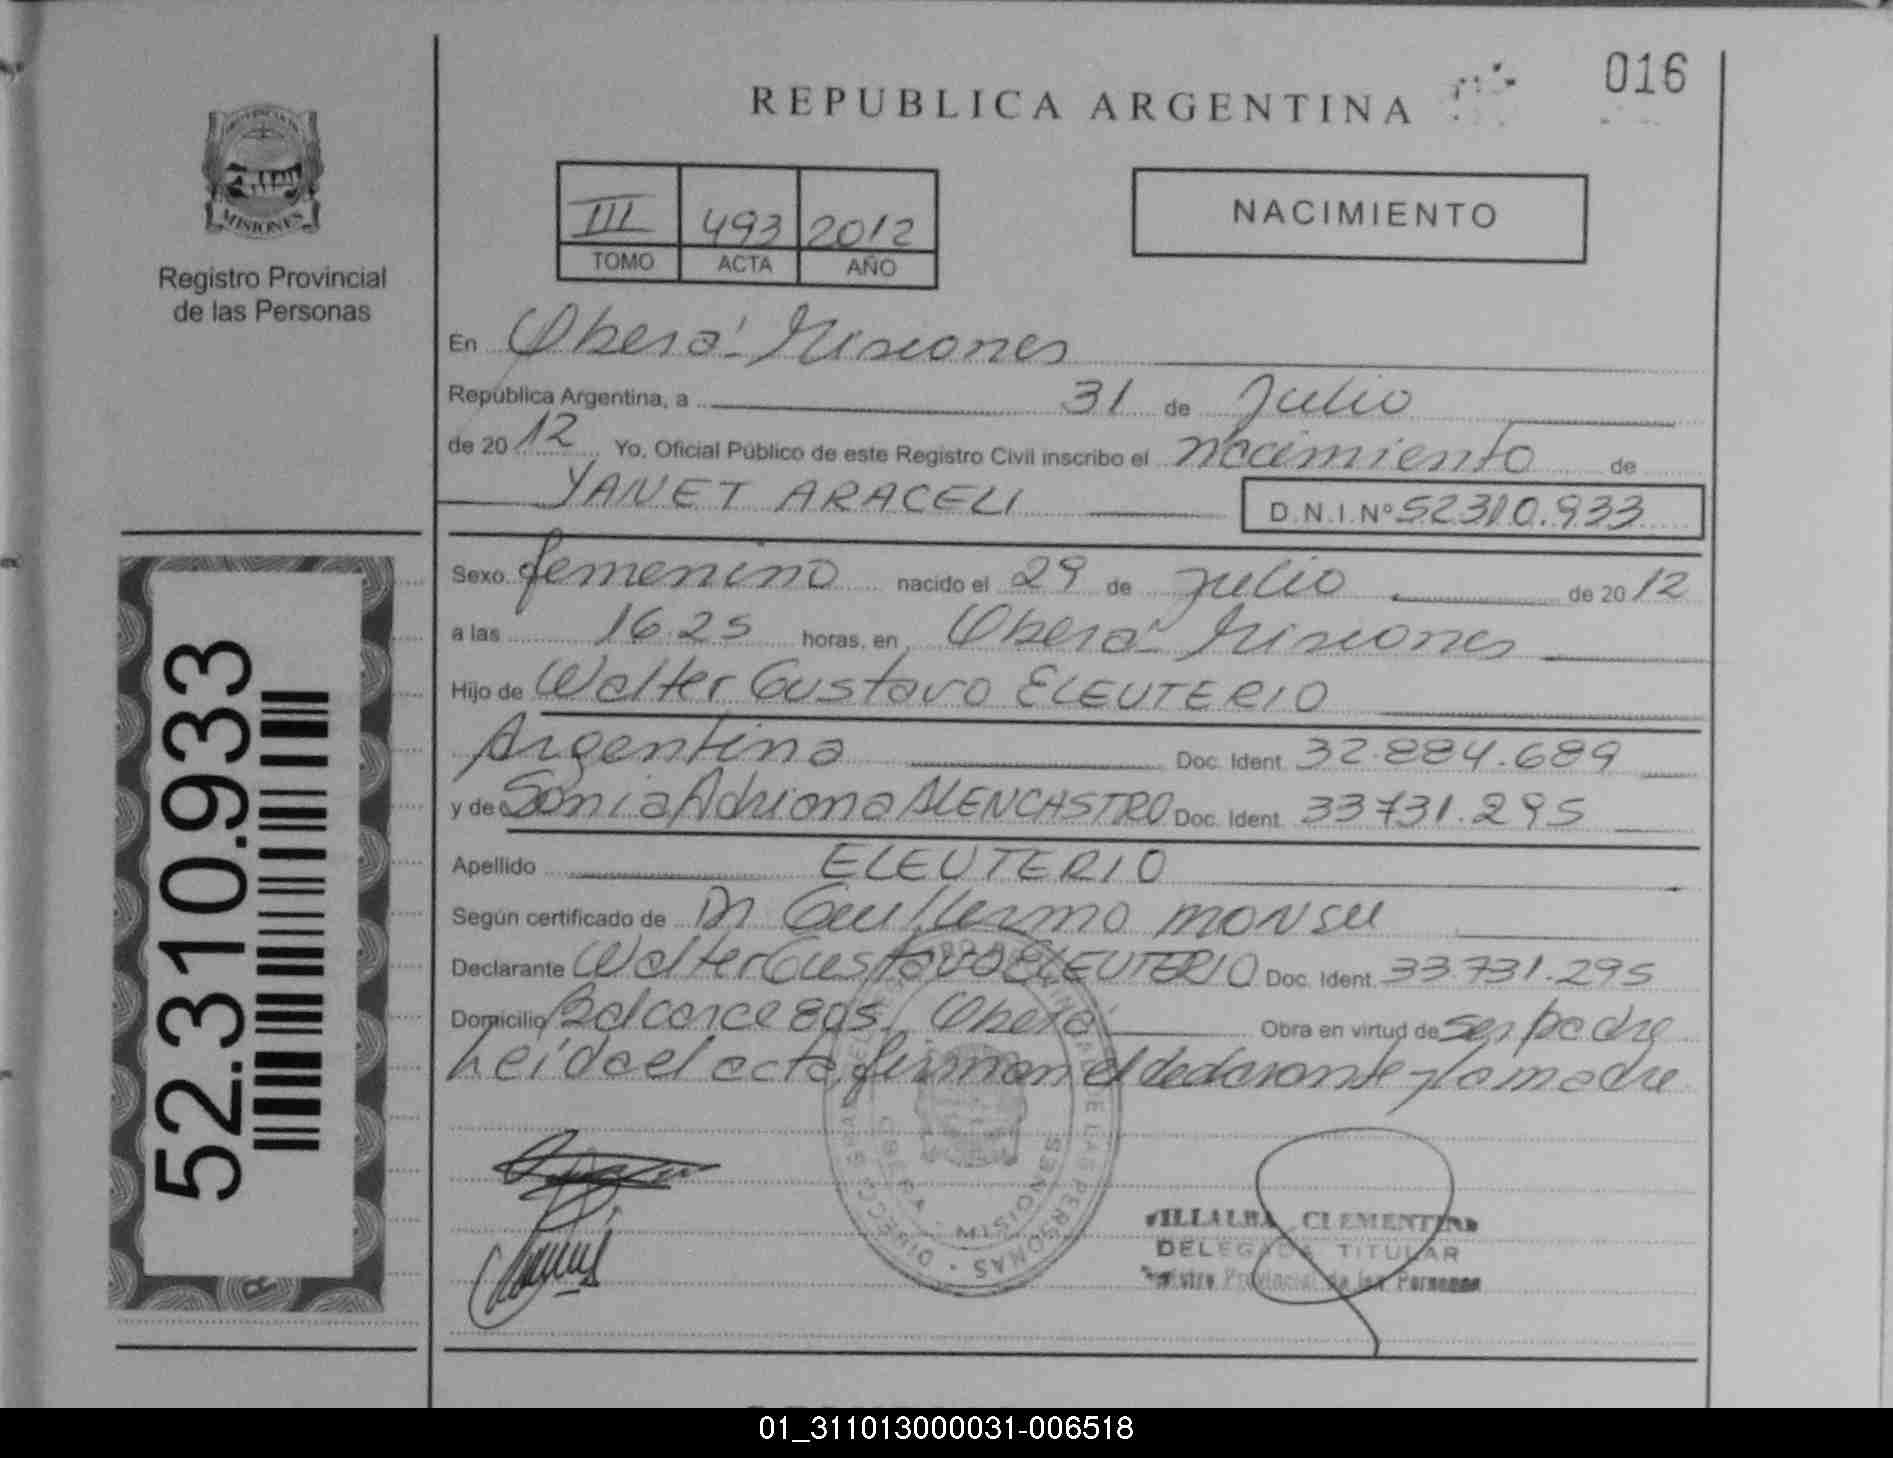 016
REPUBLICA ARGENTINA
MISIONES
Registro Provincial
de las Personas
III 493 2012
TOMO ACTA AÑO
NACIMIENTO
En Oberá - Misiones
República Argentina, a 31 de Julio
de 2012 Yo, Oficial Público de este Registro Civil inscribo el nacimiento de
YANET ARACELI D.N.I.Nº 52310.933
Sexo femenino nacido el 29 de julio de 2012
a las 16.25 horas, en Oberá - Misiones
Hijo de Walter Gustavo ELEUTERIO
Argentina Doc. Ident. 32.884.689
y de Sonia Adriana ALENCASTRO Doc. Ident. 33731.295
Apellido ELEUTERIO
Según certificado de Dr Guillermo MONSU
Declarante Walter Gustavo ELEUTERIO Doc. Ident. 33.731.295
Domicilio Balcarce 805, Oberá Obra en virtud de ser padre
Leída el acta, firman el declarante y la madre
52.310.933
VILLALBA CLEMENTINA
DELEGADA TITULAR
Registro Provincial de las Personas
01_311013000031-006518